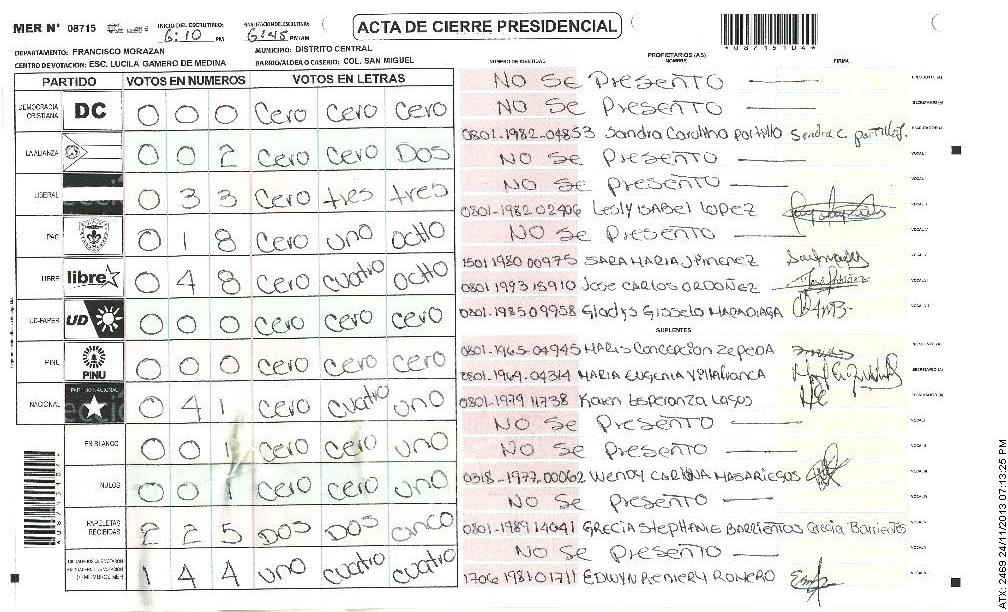 MER N° 08715
INICIO DEL ESCRUTINIO: 6:10 PM
FINALIZACION DEL ESCRUTINIO: 6:45 PM/AM
ACTA DE CIERRE PRESIDENCIAL
*08715104*
DEPARTAMENTO: FRANCISCO MORAZAN
MUNICIPIO: DISTRITO CENTRAL
CENTRO DE VOTACION: ESC. LUCILA GAMERO DE MEDINA
BARRIO/ALDEA O CASERIO: COL. SAN MIGUEL
PARTIDO VOTOS EN NUMEROS VOTOS EN LETRAS
DEMOCRACIA CRISTIANA DC 0 0 0 Cero Cero Cero
LA ALIANZA 0 0 2 Cero Cero DOS
LIBERAL 0 3 3 Cero tres tres
PAC 0 1 8 Cero uno ocho
LIBRE libre 0 4 8 Cero cuatro ocho
UD-FAPER UD 0 0 0 Cero Cero Cero
PINU PINU 0 0 0 Cero Cero Cero
NACIONAL PARTIDO NACIONAL 0 4 1 Cero cuatro uno
EN BLANCO 0 0 1 Cero Cero uno
NULOS 0 0 1 Cero Cero uno
PAPELETAS RECIBIDAS 2 2 5 DOS DOS cinco
1 4 4 uno cuatro cuatro
NUMERO DE IDENTIDAD
PROPIETARIOS (AS)
NOMBRE
FIRMA
No Se Presento
No Se Presento
0801-1982-04853 Sandra Carolina portillo Sandra C. portillo
No Se Presento
No Se Presento
0801-1982 02406 Lesly ISABEL LOPEZ
No Se Presento
1501 1980 00975 SARA MARIA JIMENEZ
0801 1993 15910 JOSE CARLOS ORDOÑEZ
0801-1985 09958 Gladys Gissela MARADIAGA
SUPLENTES
0801-1965-04945 MARIS Concepcion Zepeda
0801-1964-04314 MARIA EUGENIA Villafranca
0801-1979 11738 Karen Esperanza Lagos
No Se Presento
No Se Presento
0318-1977-00062 Wendy CAROLINA MASARIEGOS
No Se Presento
0801-1989 14041 GRECIA Stephanie BARRIENTOS Grecia Barrientos
No Se Presento
1706 1981 01711 EDWYN RENIERY ROMERO
ATX: 2469 24/11/2013 07:13:25 PM